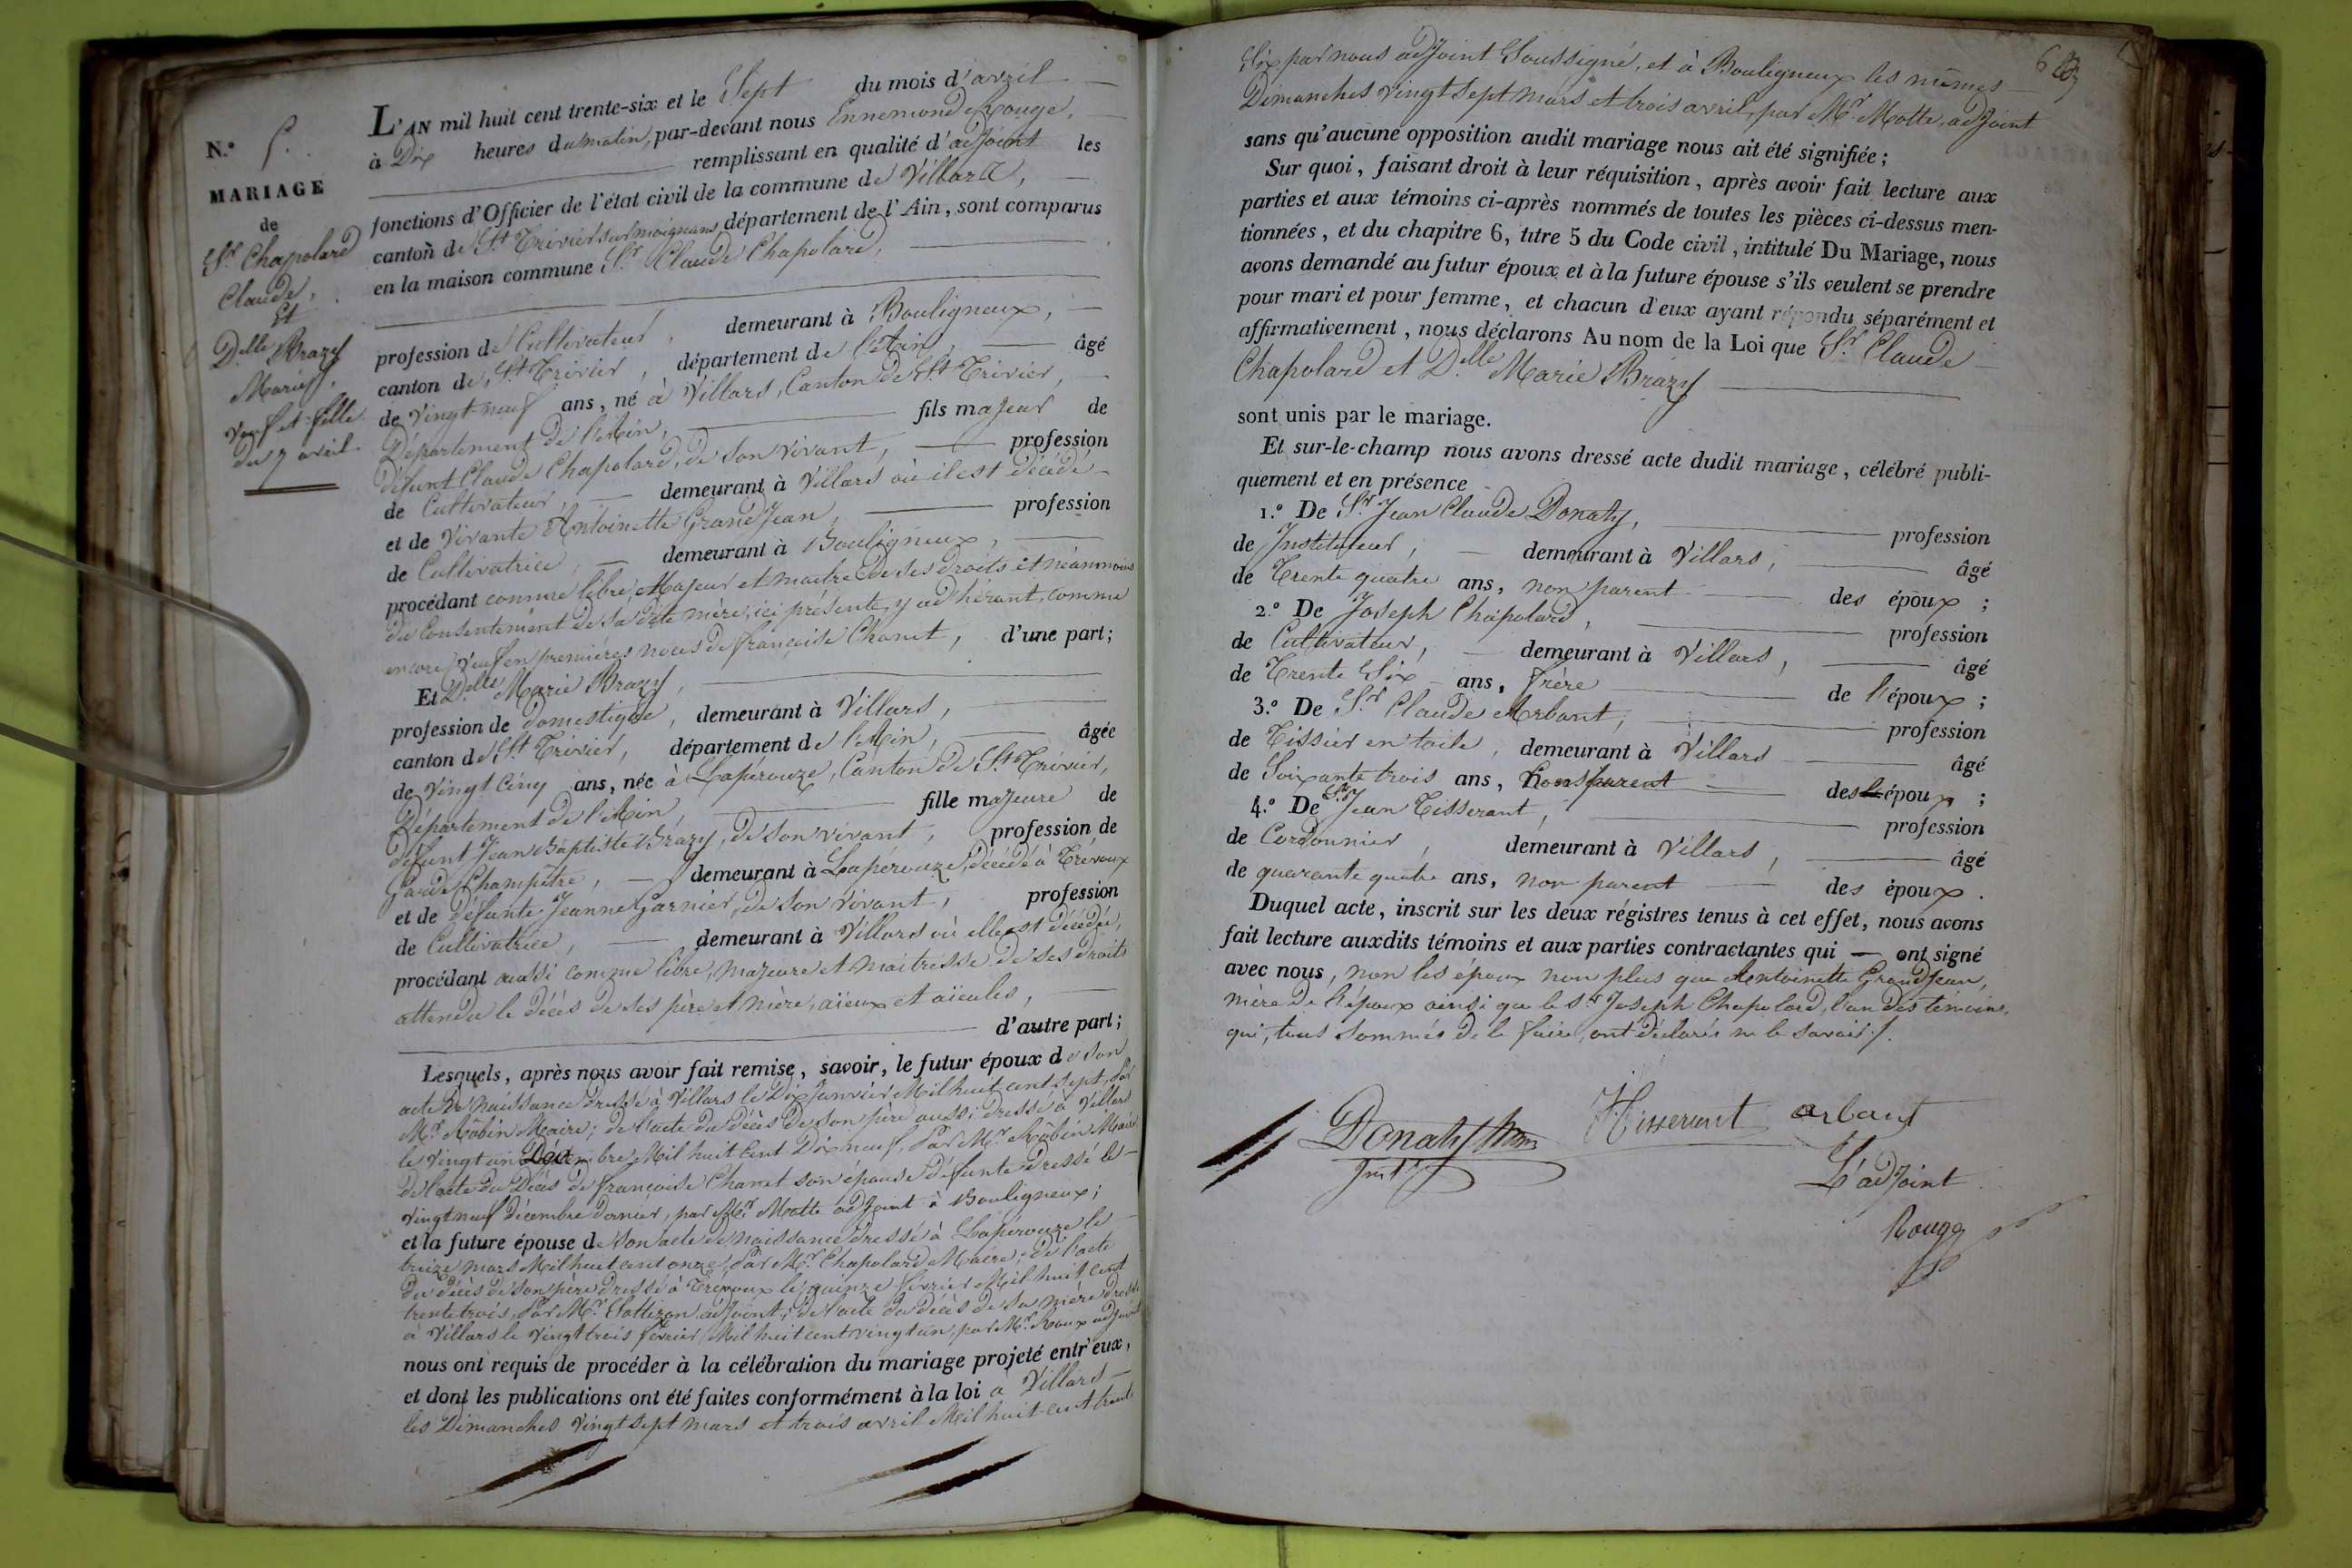 N.º 5.
MARIAGE
de
Sr. Chapolard
Claude,
Et
Delle Brazy
Marie,
veuf et fille
du 7 avril.
L'AN mil huit cent trente-six et le Sept du mois d'avril
à Dix heures du matin, par-devant nous Ennemond Rouge,
remplissant en qualité d'adjoint les
fonctions d'Officier de l'état civil de la commune de Villars,
canton de St. Trivier sur moignans, département de l'Ain, sont comparus
en la maison commune Sr. Claude Chapolard,
profession de Cultivateur, demeurant à Bouligneux,
canton de St. Trivier, département de l'Ain, âgé
de Vingt-neuf ans, né à Villars, Canton de St. Trivier,
Département de l'Ain, fils majeur de
défunt Claude Chapolard, de son vivant, profession
de Cultivateur, demeurant à Villars où il est décédé
et de Vivante Antoinette Grand Jean, profession
de Cultivatrice, demeurant à Bouligneux,
procédant comme libre, Majeur et maitre de ses droits et néanmoins
du Consentement de sa dite mère, ici présente, y adhérant, comme
encore Veuf en premières noces de françoise Chanet, d'une part;
Et Delle Marie Brazy,
profession de domestique, demeurant à Villars,
canton de St. Trivier, département de l'Ain, âgée
de Vingt Cinq ans, née à Lapérouze, Canton de St. Trivier,
Département de l'Ain, fille majeure de
défunt Jean Baptiste Brazy, de son vivant, profession de
Garde Champêtre, demeurant à Lapérouze, décédé à Trévoux
et de défunte Jeanne Garnier, de son vivant, profession
de Cultivatrice, demeurant à Villars où elle est décédée,
procédant aussi comme libre, majeure et maitresse de ses droits
attendu le décès de ses père et mère, aïeux et aïeules,
d'autre part;
Lesquels, après nous avoir fait remise, savoir, le futur époux de son
acte de naissance dressé à Villars le Dix Janvier Mil huit cent sept, par
Mr. Râbin Maire; de l'acte du décès de son père aussi dressé à Villars
le vingt un Décembre Mil huit Cent Dix neuf, par Mr. Râbin Maire
de l'acte du Décès de françoise Chanet son épouse défunte dressé le
vingt neuf Décembre dernier, par Mr. Motte adjoint à Bouligneux;
et la future épouse de son acte de naissance dressé à Lapérouze le
treize mars Mil huit cent onze, par Mr. Chapolard Maire, de l'acte
du décès de son père dressé à Trévoux le quinze février Mil huit cent
trente trois, par Mr. adjoint; de l'acte du décès de sa mère dressé
à Villars le vingt trois février Mil huit cent vingt un, par Mr. Roux adjoint
nous ont requis de procéder à la célébration du mariage projeté entr'eux,
et dont les publications ont été faites conformément à la loi à Villars
les Dimanches vingt sept mars et trois avril Mil huit-cent trente
6
Six par nous adjoint Soussigné, et à Bouligneux les mêmes
Dimanches vingt sept mars et trois avril, par Mr. Motte, adjoint
sans qu'aucune opposition audit mariage nous ait été signifiée;
Sur quoi, faisant droit à leur réquisition, après avoir fait lecture aux
parties et aux témoins ci-après nommés de toutes les pièces ci-dessus men-
tionnées, et du chapitre 6, titre 5 du Code civil, intitulé Du Mariage, nous
avons demandé au futur époux et à la future épouse s'ils veulent se prendre
pour mari et pour femme, et chacun d'eux ayant répondu séparément et
affirmativement, nous déclarons Au nom de la Loi que Sr. Claude
Chapolard et Delle Marie Brazy
sont unis par le mariage.
Et sur-le-champ nous avons dressé acte dudit mariage, célébré publi-
quement et en présence
1.º De Sr. Jean Claude Donaty, profession
de Instituteur, demeurant à Villars, âgé
de Trente quatre ans, non parent des époux;
2.º De Joseph Chapolard, profession
de Cultivateur, demeurant à Villars, âgé
de Trente Six ans, frère de l'époux;
3.º De Sr. Claude Arbant, profession
de Tissier en toile, demeurant à Villars âgé
de Soixante trois ans, non parent des époux;
4.º De Sr. Jean Tisserant, profession
de Cordonnier, demeurant à Villars, âgé
de quarante quatre ans, non parent des époux.
Duquel acte, inscrit sur les deux régistres tenus à cet effet, nous avons
fait lecture auxdits témoins et aux parties contractantes qui — ont signé
avec nous, non les époux non plus que Antoinette Grand Jean,
mère de l'époux ainsi que le Sr. Joseph Chapolard, l'un des témoins,
qui, tous sommés de le faire, ont déclarés ne le savoir /.
Donaty
Instr
Tisserant
arbant
L'adjoint
Rouge